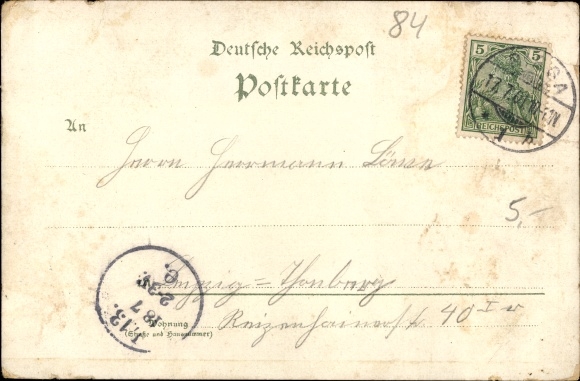 84
Deutsche Reichspost
Postkarte
5 5
REICHSPOST
17.7.01. 10-11N
An
Herrn Hermann Löwe
5,-
Leipzig=Thonberg
Wohnung
(Straße und Hausnummer)
Reizenhainerst 40 I r
L.13.
18 7